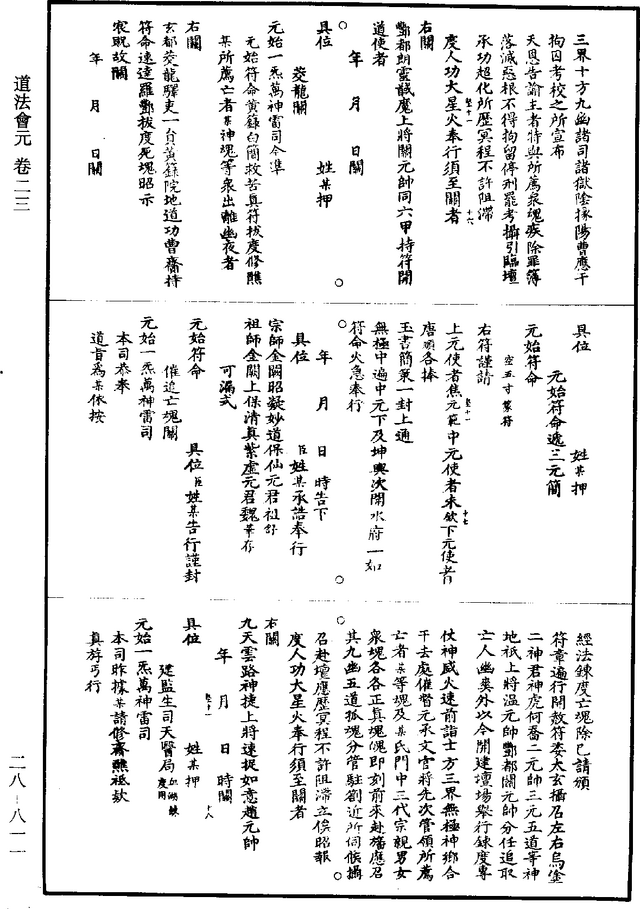 道法會元 卷二三
三界十方九幽諸司諸獄陰掾陽曹應干
拘囚考校之所宣布
天恩告諭主者特與所薦衆魂疾除罪簿
落滅惡根不得拘留停刑罷考攝引臨壇
承功超化所歷冥程不許阻滯
度人功大星火奉行須至關者
右關
酆都朗靈馘魔上將關元帥同六甲持符開
道使者
年 月 日關
具位 姓某押
茭龍關
元始一炁萬神雷司今準
元始符命黃籙白簡救苦真符拔度修醮
某所薦亡者某神魂等衆出離幽夜者
右關
玄都茭龍驛吏一合黃籙院地道功曹齎持
符命速達羅酆拔度死魂昭示
衆既故關
年 月 日關
具位 姓某押
元始符命遞三元簡
元始符命
空五寸篆符
右符謹請
上元使者焦元範中元使者未欽下元使者
唐頑各捧
玉書簡策一封上通
無極中遍中元下及坤輿次開水府一如
符命火急奉行
年 月 日 時告下
具位 臣姓某承誥奉行
宗師金闕昭凝妙道保仙元君祖舒
祖師金闕上保清真紫虛元君魏華存
可漏式
元始符命 具位臣姓某告行謹封
催追亡魂關
元始一炁萬神雷司
本司恭奉
道旨爲某依按
經法鍊度亡魂除已請頒
符章遍行開救符委太玄攝召左右烏瑩
二神君神虎何喬二元帥三元五道等神
地祇上將溫元帥酆都關元帥分任追取
亡人幽爽外以今開建壇場舉行鍊度專
仗神威火速前詣十方三界無極神鄉合
干去處催督元承文官將先次管領所薦
亡者某等魂及某氏門中三代宗親男女
衆魂各各正真魂魄即刻前來赴旛應召
其九幽五道孤魂分管駐劄近所伺候攝
召赴壇應歷冥程不許阻滯立俟昭報
度人功大星火奉行須至關者
右關
九天雲路神捷上將速捉如意趙元帥
年 月 日 時關
具位 姓某押
建監生司天醫局血湖鍊度用
元始一炁萬神雷司
本司昨據某請修齋醮祗欽
真斿丐行
二八-八一一